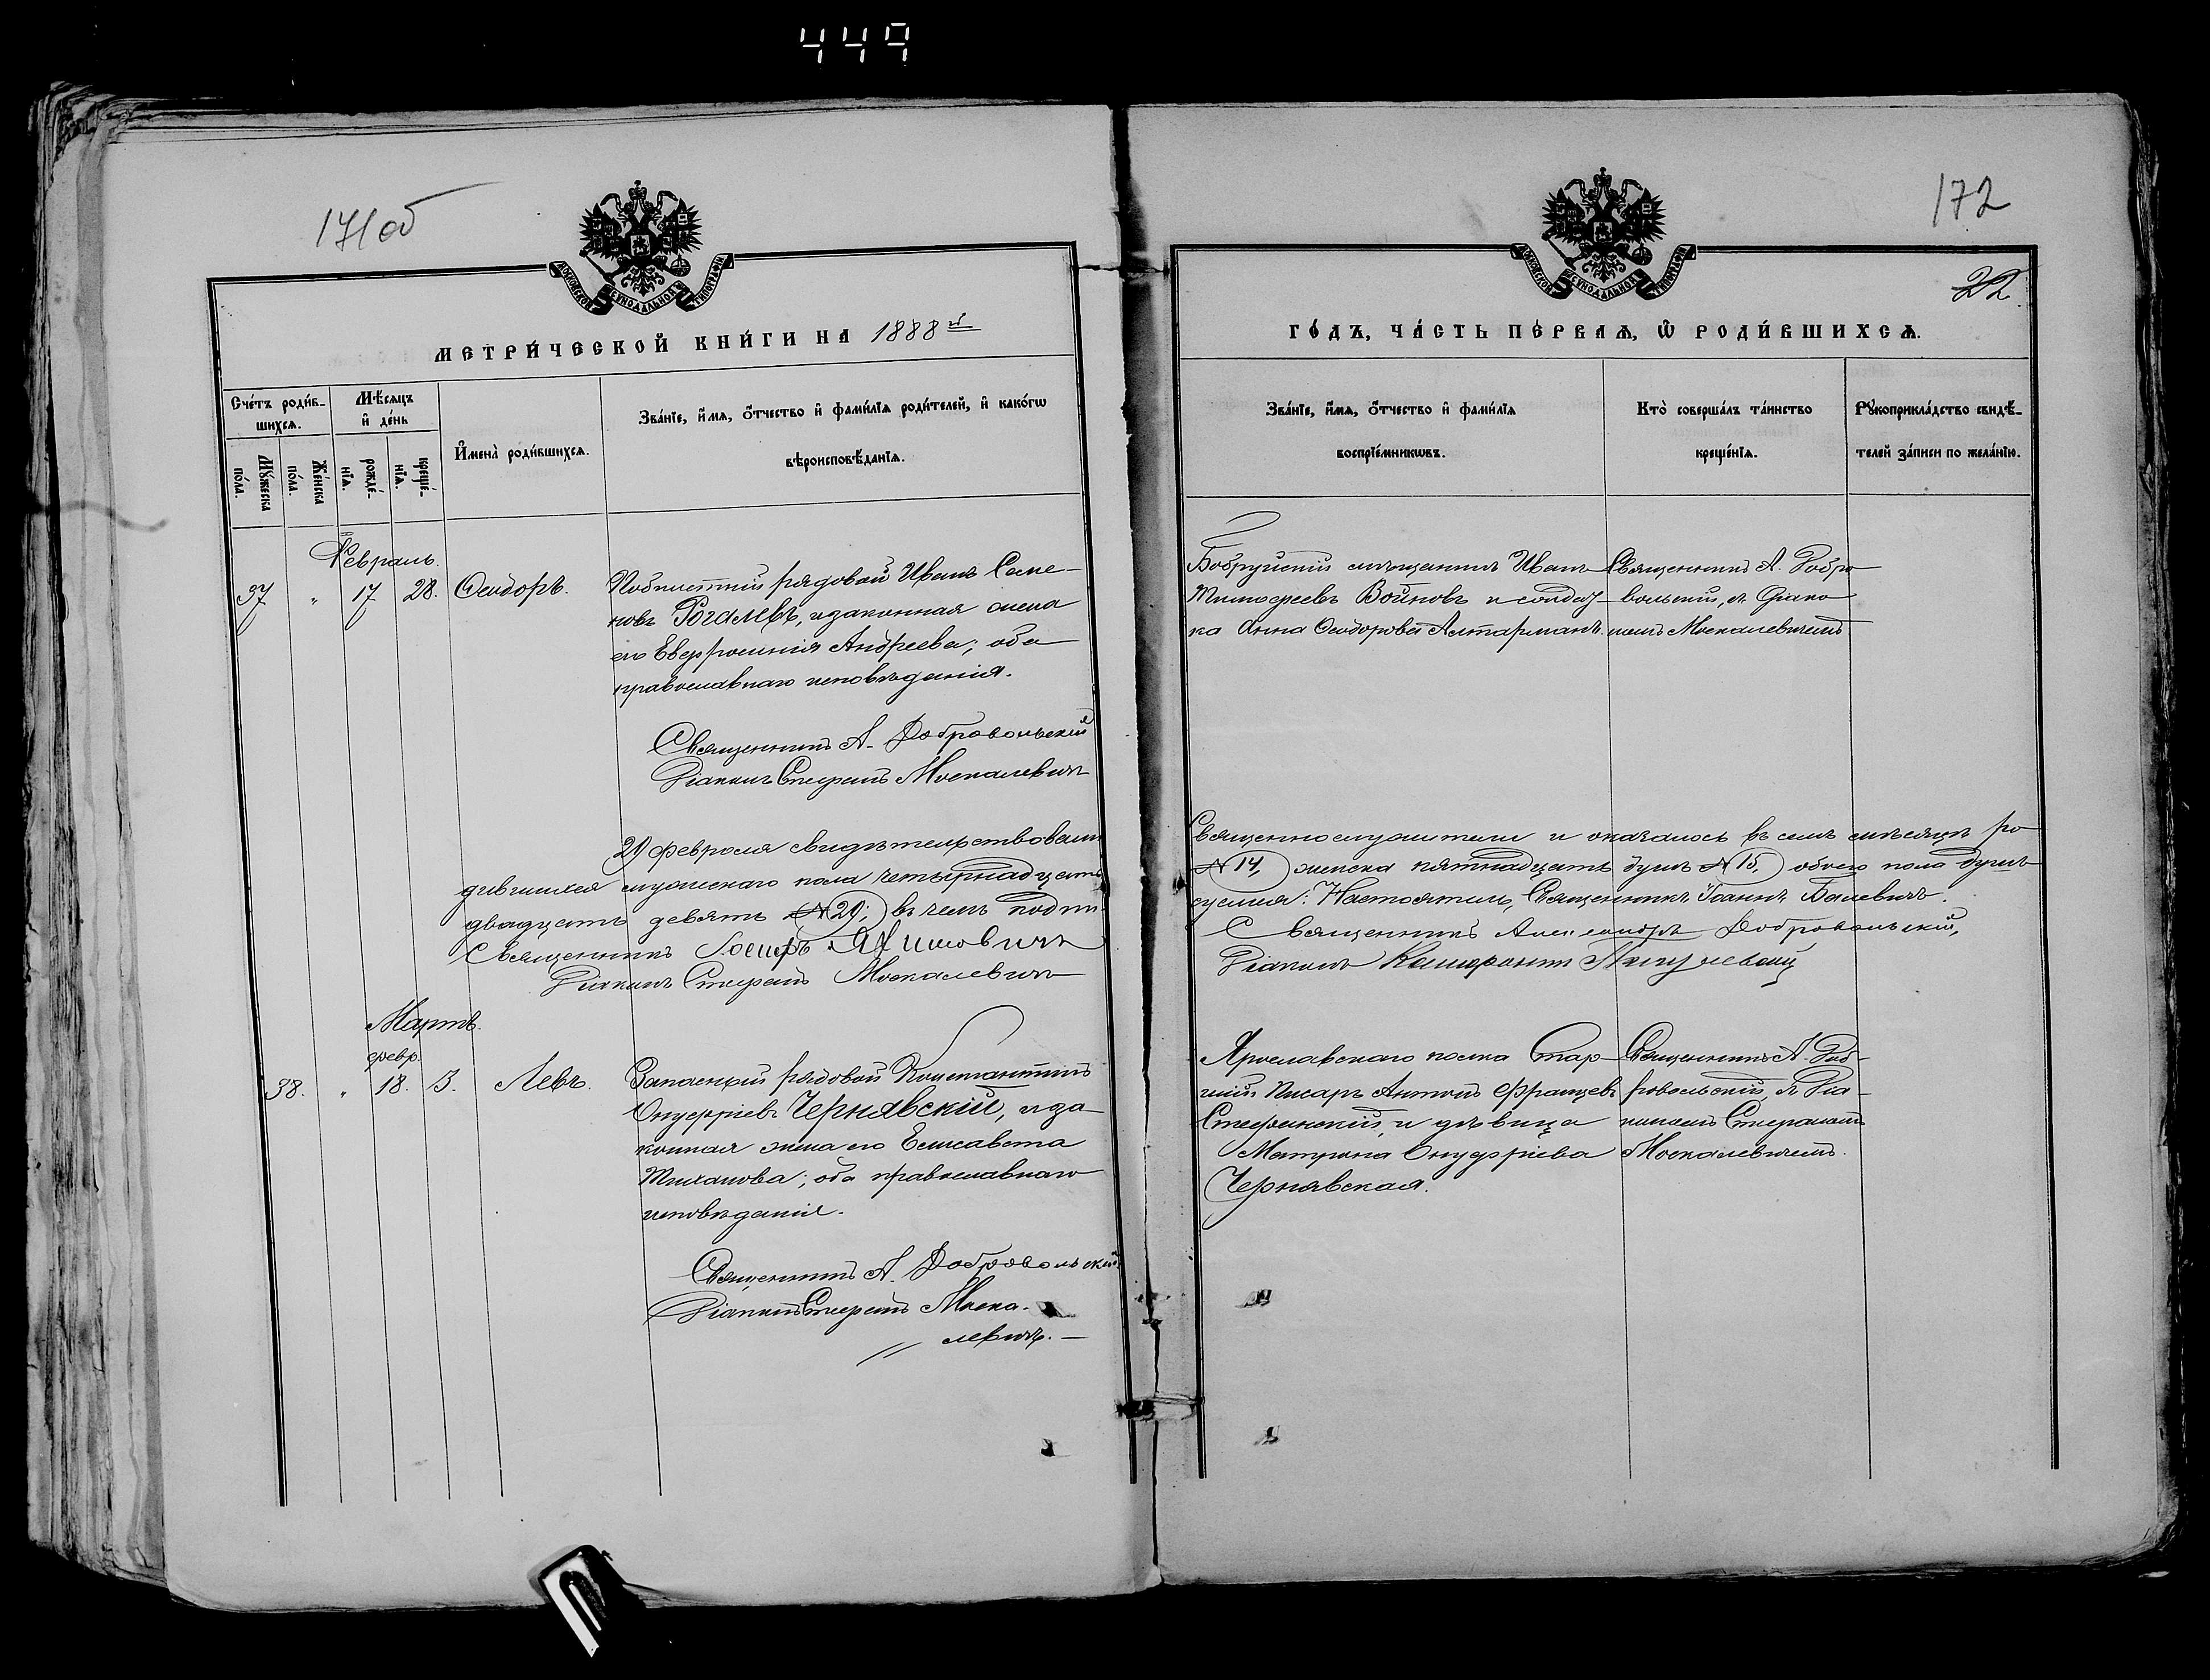 449
171об
МОСКОВСКОЙ СѴНОДАЛЬНОЙ ТИПОГРАФІИ
МЕТРИ́ЧЕСКОЙ КНИ́ГИ НА 1888й
Сче́тъ роди́в-
шихсѧ.
Мѣ́сѧцъ
и҆ де́нь
Мꙋ́жеска
по́ла.
Же́нска
по́ла.
рожде́-
нїѧ.
креще́-
нїѧ.
И҆мена̀ роди́вшихсѧ.
Зва́нїе, и҆́мѧ, ѻ҆́тчество и҆ фами́лїѧ роди́телей, и҆ како́гѡ
вѣроисповѣ́данїѧ.
Февраль.
37 " 17 28. Ѳеодоръ.
рядовой Иванъ Семе-
новъ Рогалевъ, и законная жена
его Евфросинія Андреева; оба
православнаго исповѣданія.
Священникъ А. Добровольскій
Діаконъ Стефанъ Москалевичъ
29 февраля свидѣтельствовали
дившихся мужескаго пола четырнадцать
двадцать девять №29; въ чемъ подпи-
Священникъ Іосифъ
Діаконъ Стефанъ Москалевичъ
Мартъ.
февр.
38. " 18. 3. Левъ.
Запасный рядовой Константинъ
Онуфріевъ Чернявскій, и за-
конная жена его Елисавета
Тихонова; оба православнаго
исповѣданія.
Священникъ А. Добровольскій.
Діаконъ Стефанъ Моска-
левичъ.
172
22
МОСКОВСКОЙ СѴНОДАЛЬНОЙ ТИПОГРАФІИ
ГО́ДЪ, ЧА́СТЬ ПЕ́РВАѦ, Ѡ҆ РОДИ́ВШИХСѦ.
Зва́нїе, и҆́мѧ, ѻ҆́тчество и҆ фами́лїѧ
воспрїе́мникѡвъ.
Кто̀ соверша́лъ та́инство
креще́нїѧ.
Рꙋкоприкла́дство свидѣ́-
телей за́писи по жела́нїю.
Бобруйскій мѣщанинъ Иванъ
Тимофеевъ Войновъ и солдат-
ка Анна Ѳеодорова Алтарманъ.
Священникъ А. Добро-
вольскій, съ Діако-
номъ Москалевичемъ
Священнослужители и оказалось въ семъ мѣсяцѣ ро-
№14, женска пятнадцать душъ №15, обоего пола душъ
суемся: Настоятель, Священникъ Іоаннъ Балевичъ.
Священникъ Александръ Добровольскій,
Діаконъ
Ярославскаго полка Стар-
шій Писарь Антонъ Францевъ
Стефанскій, и дѣвица
Матрона Онуфріева
Чернявская.
Священникъ А. Доб-
ровольскій, съ Діа-
кономъ Стефаномъ
Москалевичемъ.